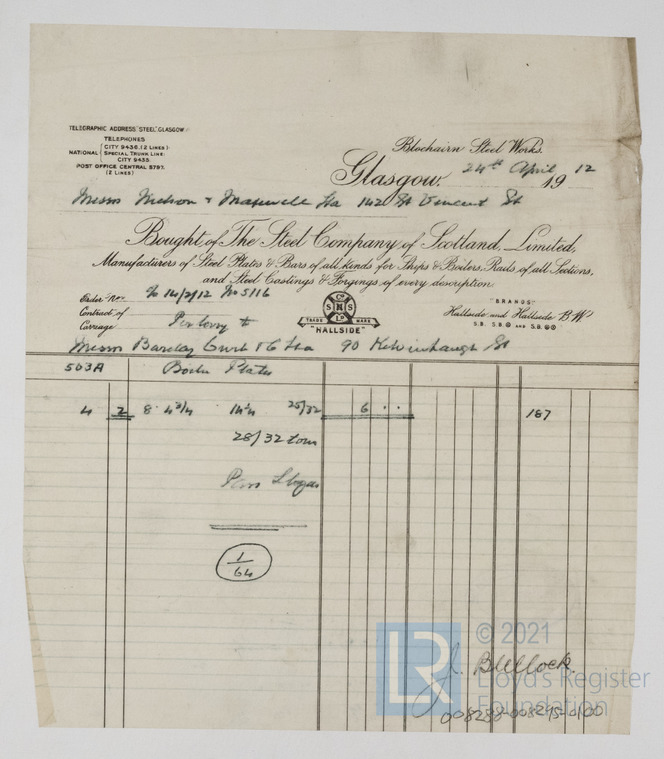 TELEGRAPHIC ADDRESS "STEEL" GLASGOW
TELEPHONES
NATIONAL { CITY 9430. (2 LINES)
SPECIAL TRUNK LINE:
CITY 9435
POST OFFICE CENTRAL 5797.
(2 LINES)
Blochairn Steel Works.
Glasgow. 24th April 1912
Messrs & Maxwell Ltd 142 St Vincent St
Bought of The Steel Company of Scotland, Limited,
Manufacturers of Steel Plates & Bars of all kinds for Ships & Boilers, Rails of all Sections,
and Steel Castings & Forgings of every description.
Order Nos. 14/2/12 No 5116
Contract of
Carriage Per lorry to
TRADE MARK
"HALLSIDE"
"BRANDS"
Hallside and Hallside B.W.
S.B. S.B. AND S.B.
Messrs Barclay Curle & Co Ltd 90 Kelvinhaugh St
563A Boiler Plates
4 2 8 4¾ 14¼ 25/32 6 . . 187
28/32 tons
1/64
J. Bullock.
LR © 2021
Lloyd's Register
Foundation
008288-008295-0100